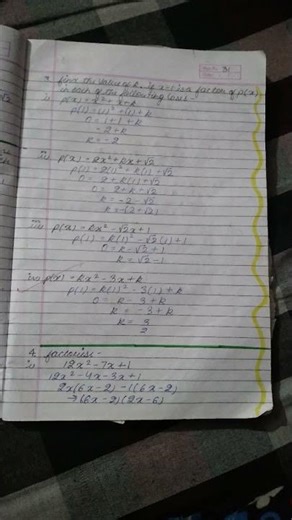 3. Find the value of k, if x-1 is a factor of p(x)
in each of the following cases:-
i) p(x) = x² + x + k
p(1) = (1)² + (1) + k
0 = 1 + 1 + k
= 2 + k
k = -2
ii) p(x) = 2x² + kx + √2
p(1) = 2(1)² + k(1) + √2
0 = 2 + k(1) + √2
0 = 2 + k + √2
k = -2 - √2
k = -(2 + √2)
iii) p(x) = kx² - √2x + 1
p(1) = k(1)² - √2(1) + 1
0 = k - √2 + 1
k = √2 - 1
iv) p(x) = kx² - 3x + k
p(1) = k(1)² - 3(1) + k
0 = k - 3 + k
k = -3 + k
k = 3
2
4. factorise:-
i) 12x² - 7x + 1
12x² - 4x - 3x + 1
2x(6x - 2) - 1(6x - 2)
→ (6x - 2)(2x - 6)